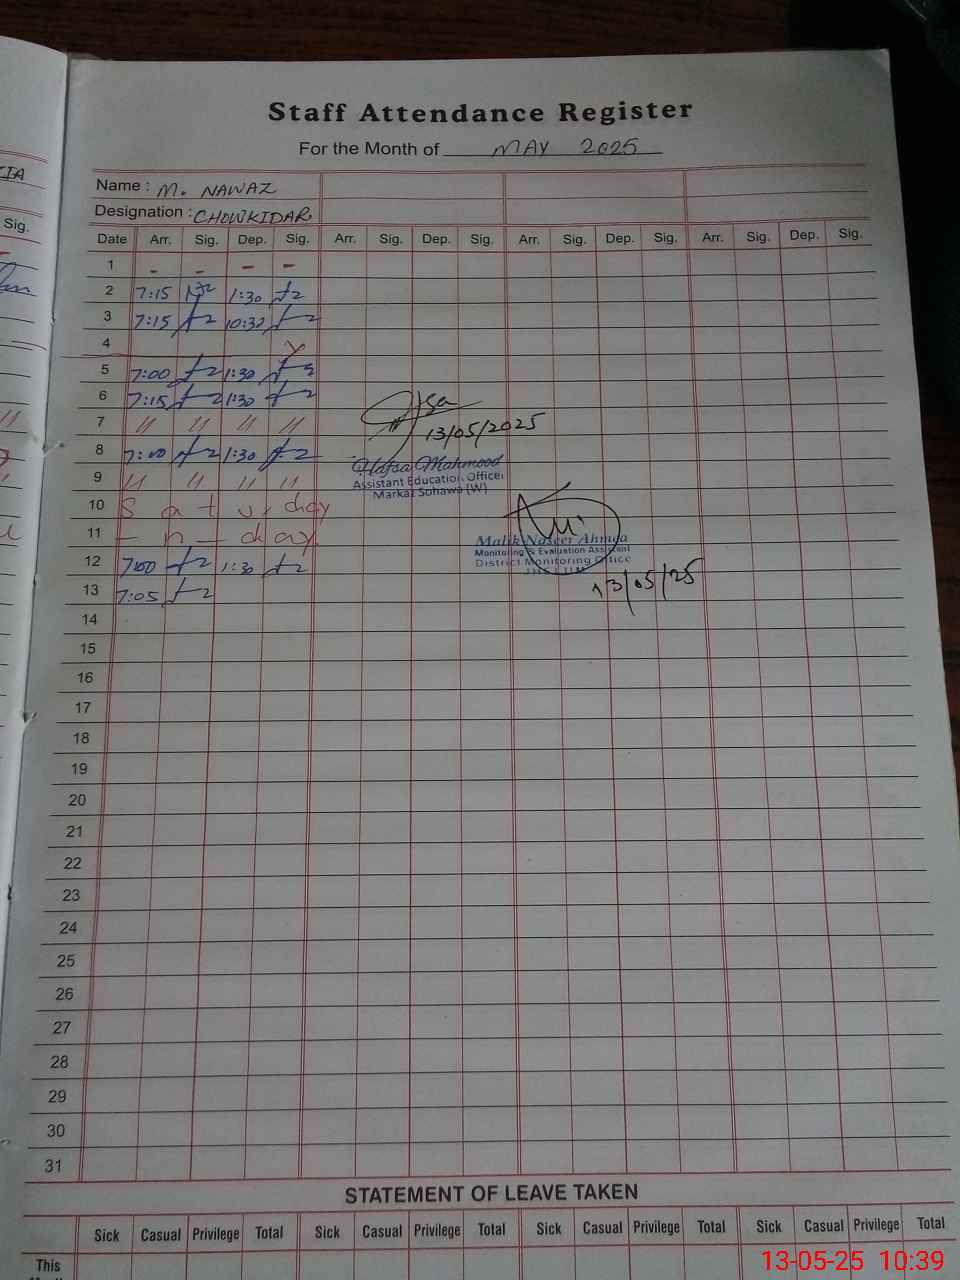 Staff Attendance Register
For the Month of MAY 2025
Name : M. NAWAZ
Designation : CHOWKIDAR
Sig.
Date Arr. Sig. Dep. Sig. Arr. Sig. Dep. Sig. Arr. Sig. Dep. Sig. Arr. Sig. Dep. Sig.
1 - - - -
2 7:15 1:30
3 7:15 10:30
4
5 7:00 1:30
6 7:15 1:30
7 〃 〃 〃 〃
13/05/2025
8 7:00 1:30
Hafsa Mahmood
Assistant Education Officer
Markaz Sohawa (W)
9 〃 〃 〃 〃
10 S a t u r day
11 - n - day
Malik Naseer Ahmed
Monitoring & Evaluation Assistant
District Monitoring Office
JHELUM
12 7:00 1:30
13/05/25
13 7:05
14
15
16
17
18
19
20
21
22
23
24
25
26
27
28
29
30
31
STATEMENT OF LEAVE TAKEN
Sick Casual Privilege Total Sick Casual Privilege Total Sick Casual Privilege Total Sick Casual Privilege Total
This
13-05-25 10:39